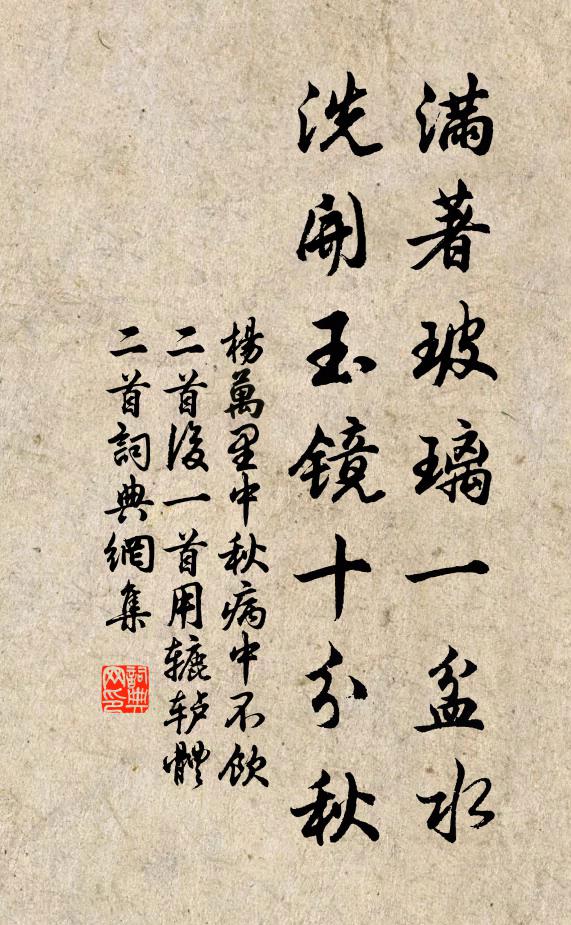 滿著玻璃一盆水
洗開玉鏡十分秋
楊萬里中秋病中不飲
二首後一首用辘轳體
二首詞典網集
詞典网印